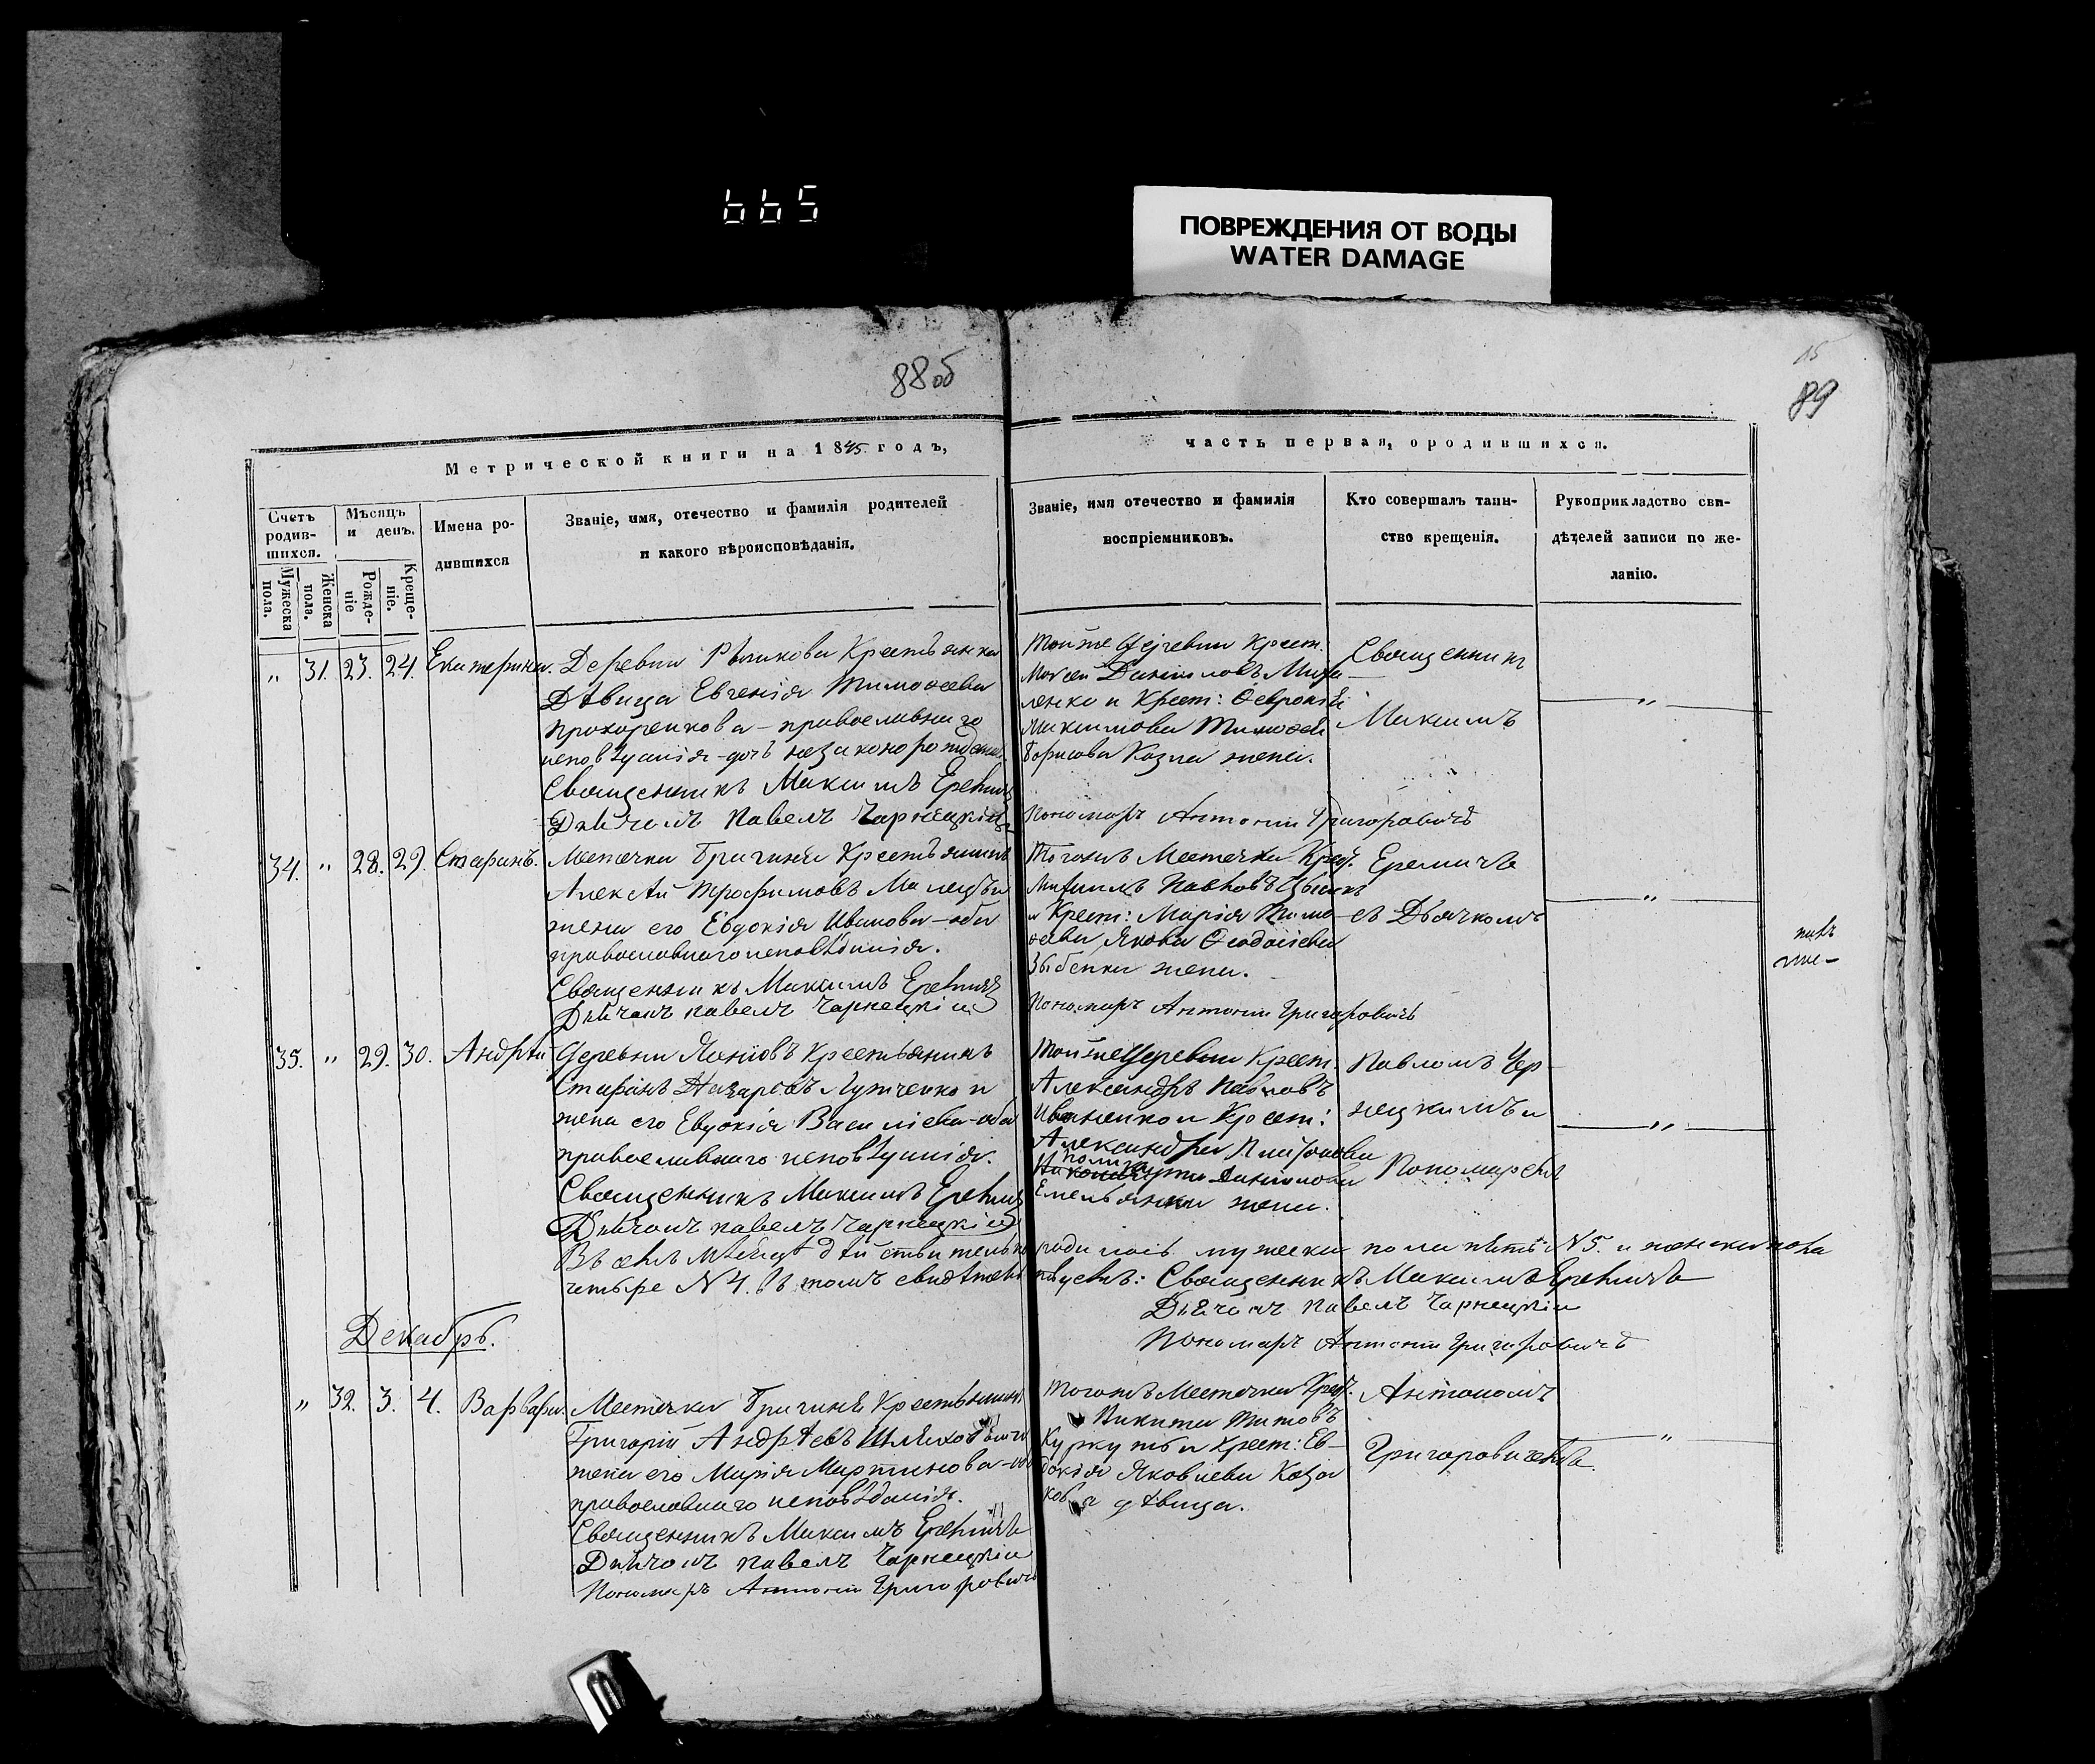 665
ПОВРЕЖДЕНИЯ ОТ ВОДЫ
WATER DAMAGE
88об
15
89
Метрической книги на 1845 годъ,
часть первая, ородившихся.
Счетъ родив-шихся.
Мужеска пола.
Женска пола.
Мѣсяцъ и день.
Рожде-ніе
Креще-ніе.
Имена ро-дившихся
Званіе, имя, отечество и фамилія родителей
и какого вѣроисповѣданія.
Званіе, имя отечество и фамилія
воспріемниковъ.
Кто совершалъ таин-
ство крещенія.
Рукоприкладство сви-
дѣтелей записи по же-
ланію.
„ 31. 23. 24. Екатерина. Деревни Крестьянка
Дѣвица Евгенія Тимоѳеева
Прохоренкова – православнаго
исповѣданія – дочь незаконорожден.
Священникъ Максимъ Еремичъ
Павелъ Чарнецкій
Тойже Деревни Крест.
Моѵсей Даніиловъ
и Крест: Ѳевронія
Максимова Тимоѳея
Борисова Козла жена.
Пономаръ Антоній Григоровичъ
Священникъ
Максимъ
„
34. „ 28. 29. Стефанъ. Местечка Брагиня Крестьянинъ
Алексѣй Трофимовъ
жена его Евдокія Иванова – оба
православнаго исповѣданія.
Священникъ Максимъ Еремичъ
Павелъ Чарнецкій
Тогожъ Местечка Крест.
Павловъ
и Крест: Марія Тимо-
ѳеева Якова Ѳеодосіева
жена.
Пономаръ Антоній Григоровичъ
Еремичъ
съ Дьячкомъ
„
такъ
же-
35. „ 29. 30. Андрей Деревни Крестьянинъ
Стефанъ Назаровъ и
жена его Евдокія Василіева – оба
православнаго исповѣданія.
Священникъ Максимъ Еремичъ
Павелъ Чарнецкій
Тойже Деревни Крест.
Александръ Павловъ
Иваненко и Крест:
Александра
Поликарпа
Емельянки жена.
Павломъ Чер-
нецкимъ и
Пономаремъ
„
Въ семъ мѣсяцѣ дѣйствительно родилось мужеска пола пять N 5. и женска пола
четыре N 4. въ томъ свидѣтельствуемъ: Священникъ Максимъ Еремичъ
Павелъ Чарнецкій
Пономаръ Антоній Григоровичъ
Декабрь.
„ 32. 3. 4. Варвара. Местечка Брагиня Крестьянинъ
Григорій Андрѣевъ
жена его Марія Мартинова – оба
православнаго исповѣданія.
Священникъ Максимъ Еремичъ
Павелъ Чарнецкій
Пономаръ Антоній Григоровичъ
Тогожъ Местечка Крест.
Никита Титовъ
и Крест: Ев-
докія Яковлева Коза-
кова дѣвица.
Антономъ
Григоровичемъ.
„